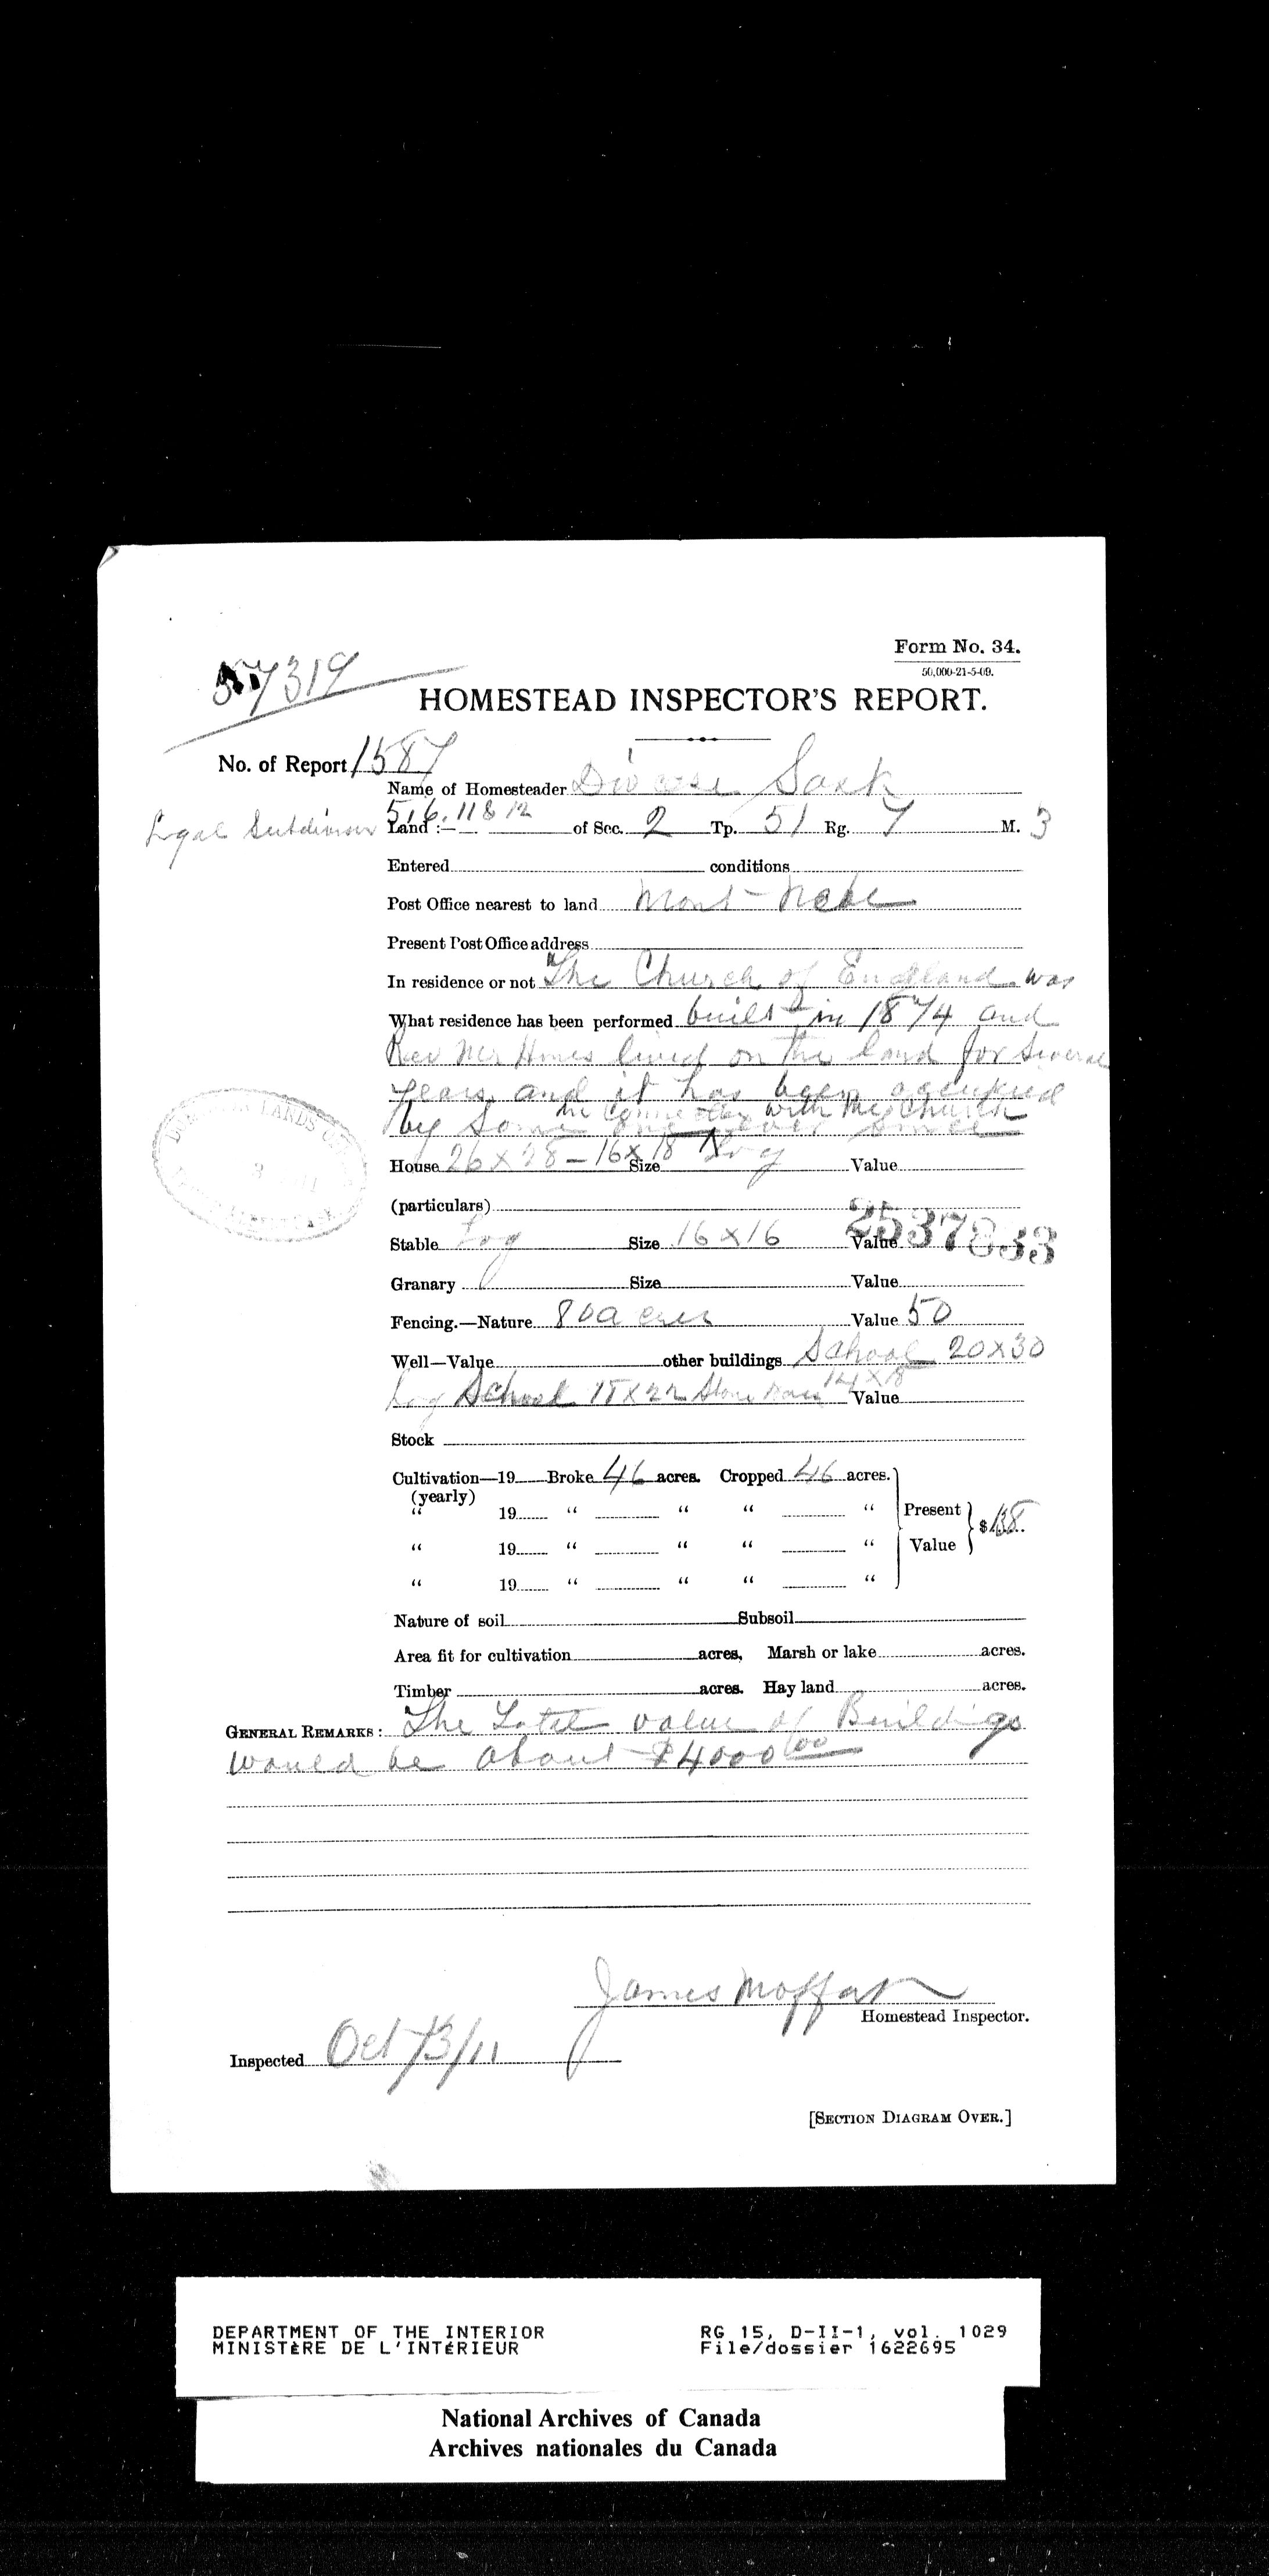 Form No. 34.
50,000-21-5-09.
57319
HOMESTEAD INSPECTOR'S REPORT.
No. of Report 1587
Name of Homesteader Diocese Sask
Legal Subdivision Land:— 5, 6, 11 & 12 of Sec. 2 Tp. 51 Rg. 7 M. 3
Entered conditions
Post Office nearest to land Mont Nebo
Present Post Office address
In residence or not The Church of England was
What residence has been performed built in 1874 and
Rev Mr Hines lived on the land for several
years and it has been occupied
in connection with the Church
by some one ever since
House 26 x 28 – 16 x 18 Log Size Value
(particulars)
Stable Log Size 16 x 16 Value
2537833
Granary Size Value
Fencing.—Nature 80 acres Value 50
Well—Value other buildings School 20 x 30
Log School 18 x 22 Store 14 x 18 Value
Stock
Cultivation—19 Broke 46 acres. Cropped 46 acres.
(yearly)
" 19 " " " " Present
$ 138
" 19 " " " " Value
" 19 " " " "
Nature of soil Subsoil
Area fit for cultivation acres, Marsh or lake acres.
Timber acres. Hay land acres.
GENERAL REMARKS: The Total value of Buildings
would be about $4000.00
James Moffat
Homestead Inspector.
Inspected Oct 13/11
[SECTION DIAGRAM OVER.]
DEPARTMENT OF THE INTERIOR
MINISTÈRE DE L'INTÉRIEUR
RG 15, D-II-1, vol. 1029
File/dossier 1622695
National Archives of Canada
Archives nationales du Canada